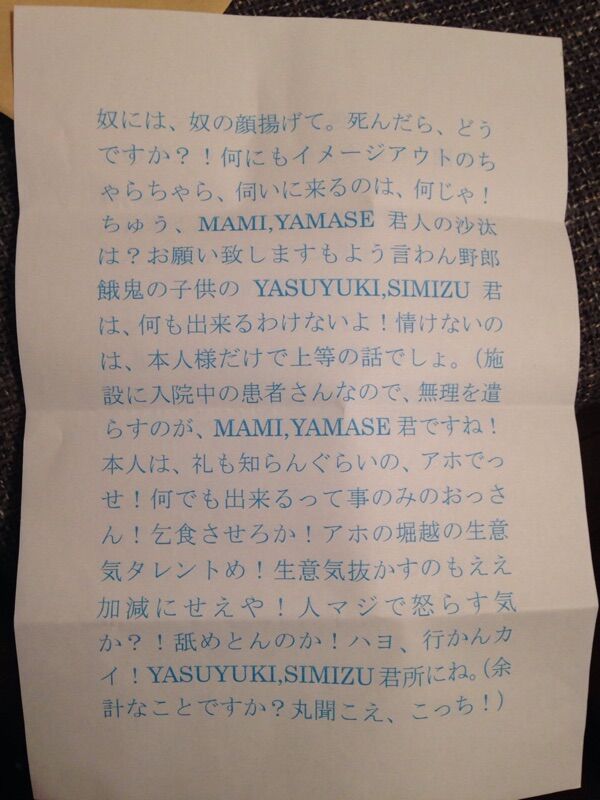 奴には、奴の顔揚げて。死んだら、どう
ですか？！何にもイメージアウトのち
ゃらちゃら、伺いに来るのは、何じゃ！
ちゅう、MAMI,YAMASE 君人の沙汰
は？お願い致しますもよう言わん野郎
餓鬼の子供の YASUYUKI,SIMIZU 君
は、何も出来るわけないよ！情けないの
は、本人様だけで上等の話でしょ。（施
設に入院中の患者さんなので、無理を遣
らすのが、MAMI,YAMASE 君ですね！
本人は、礼も知らんぐらいの、アホでっ
せ！何でも出来るって事のみのおっさ
ん！乞食させろか！アホの堀越の生意
気タレントめ！生意気抜かすのもええ
加減にせえや！人マジで怒らす気
か？！舐めとんのか！ハヨ、行かんカ
イ！YASUYUKI,SIMIZU 君所にね。（余
計なことですか？丸聞こえ、こっち！）